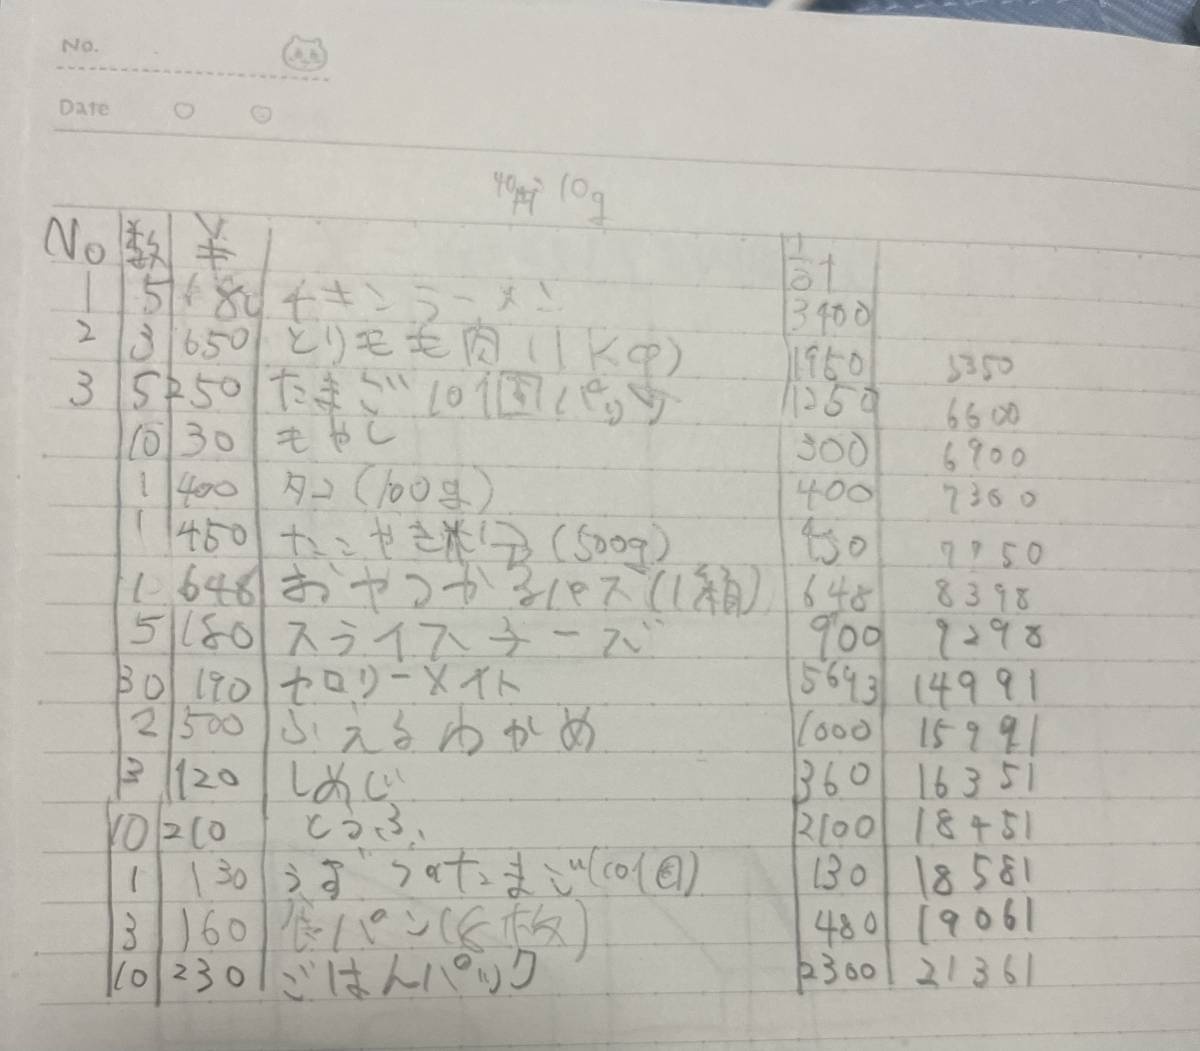 No.
Date
10g
No 数 ¥ 計
1 5 680 チキンラーメン 3400
2 3 650 とりもも肉(1Kg) 1950 5350
3 5 250 たまご10個パック 1250 6600
10 30 もやし 300 6900
1 400 タコ(100g) 400 7300
1 450 たこやき粉(500g) 450 7750
1 648 おやつかるパス(1箱) 648 8398
5 180 スライスチーズ 900 9298
30 190 カロリーメイト 5693 14991
2 500 ふえるわかめ 1000 15991
3 120 しめじ 360 16351
10 210 とうふ 2100 18451
1 130 うずらのたまご(10個) 130 18581
3 160 食パン(8枚) 480 19061
10 230 ごはんパック 2300 21361